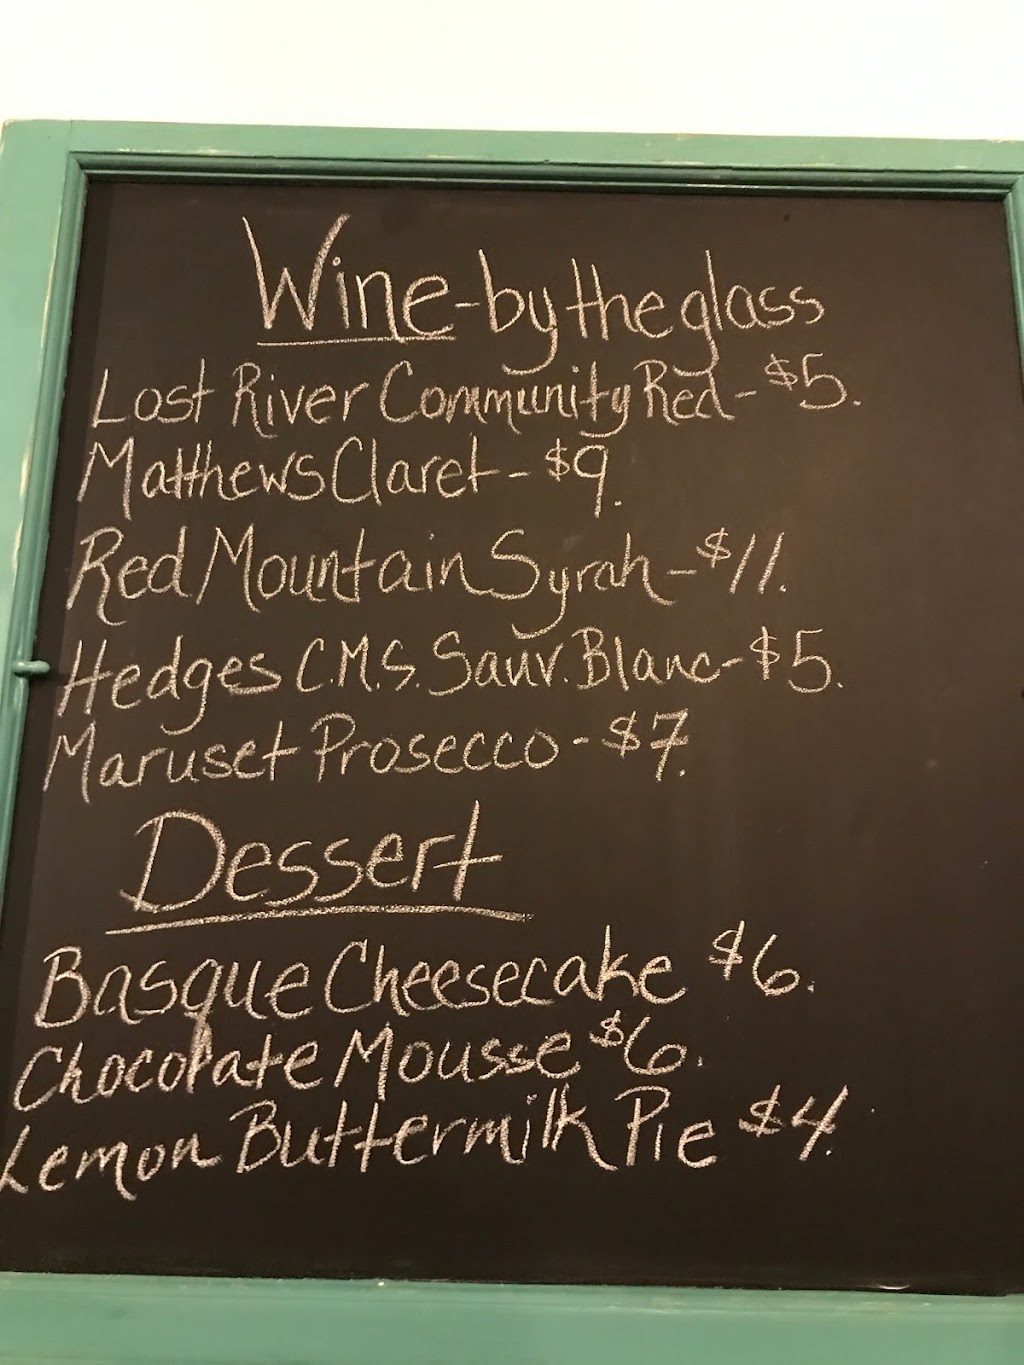 Wine-by the glass
Lost River Community Red-$5.
Matthews Claret-$9.
Red Mountain Syrah-$11.
Hedges C.M.S. Sauv. Blanc-$5.
Maruset Prosecco-$7.
Dessert
Basque Cheesecake $6.
Chocolate Mousse $6.
Lemon Buttermilk Pie $4.